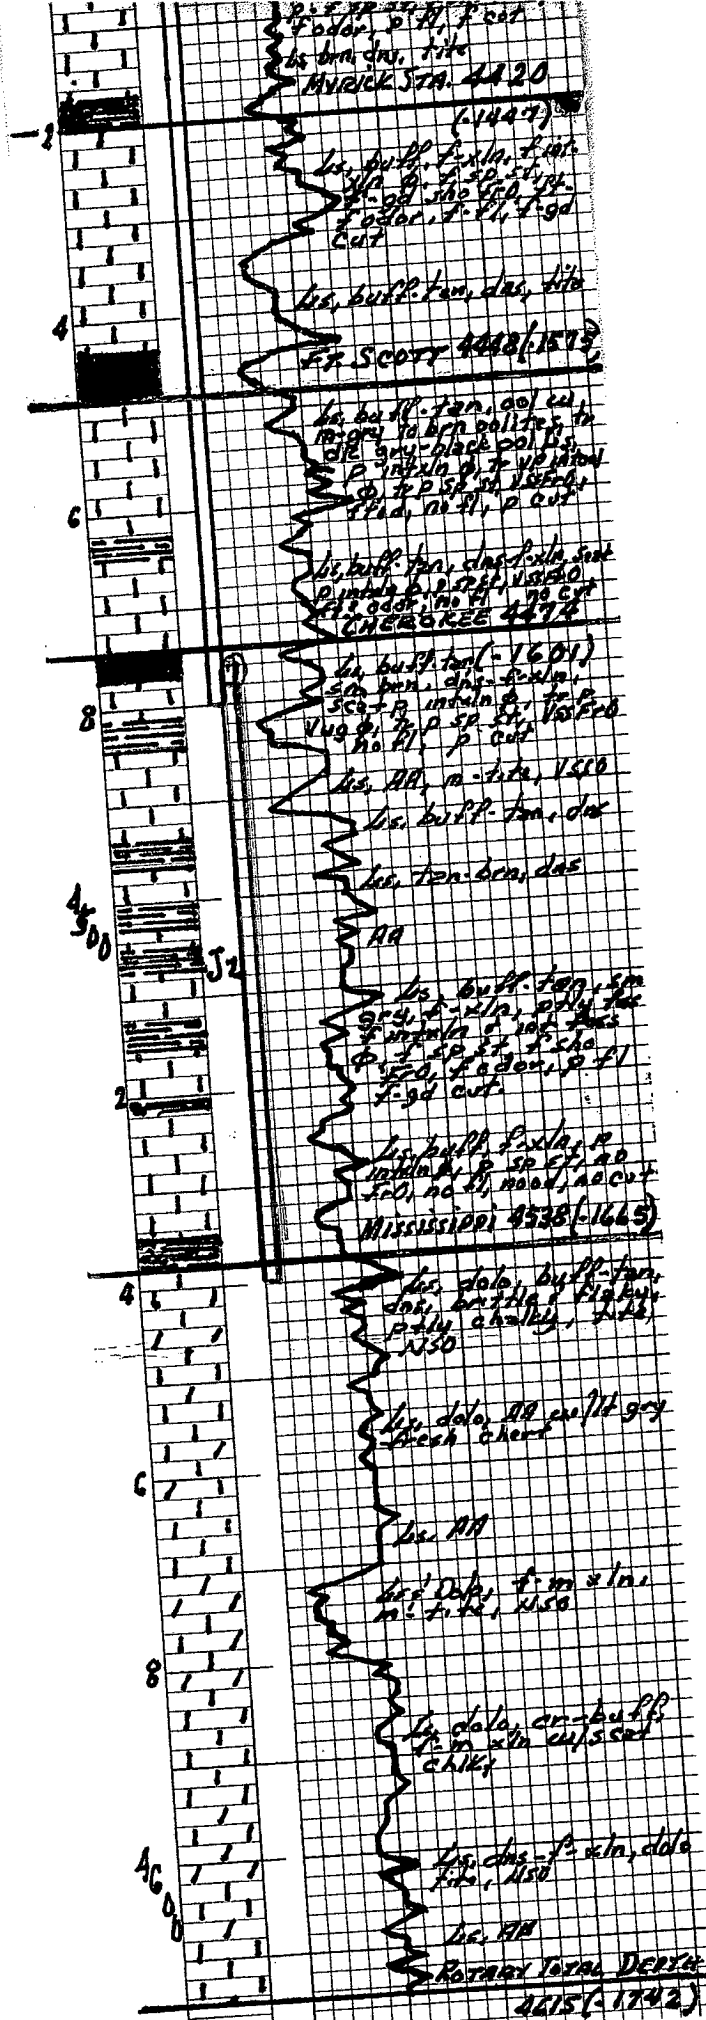 f odor, p fl, f cut
Ls brn, dns, tite
MYRICK STA. 4420
2
(-1447)
Ls, buff, f-xln, f int-
xln φ, f sp st,
f-gd sho FrO, ft-
f odor, f-fl, f-gd
cut
Ls, buff-tan, dns, tite
4
FT. SCOTT 4448 (-1575)
Ls, buff-tan, ool w/
m-gry to brn oolites, tr
dk gry-black oolites,
p intxln φ, tr vp
φ, tr p sp st, VSSFrO,
no fl, p cut
6
Ls, buff-tan, dns-f-xln, scat
p intxln φ, p sp st, VSSFrO
odor, no fl, no cut
CHEROKEE 4474
Ls, buff-tan (-1601)
sm brn, dns-f-xln,
scat p intxln φ, tr p
8
vug φ, tr p sp st, VSSFrO
no fl, p cut
Ls, AA, m-tite, VSSO
Ls, buff-tan, dns
Ls, tan-brn, dns
4500
AA
J2
Ls, buff-tan, sm
gry, f-xln, ptly foss
f intxln & int foss
φ, f sp st f sho
FrO, f odor, p fl
2
f-gd cut.
Ls, buff, f-xln, p
intxln φ, p sp st, no
FrO, no fl, no od, no cut
MISSISSIPPI 4538 (-1665)
4
Ls, dolo, buff-tan,
dns, brittle, flaky,
ptly chalky, tite,
NSO
Ls, dolo, AA w/lt gry
fresh chert
6
Ls, AA
Ls & Dolo, f-m xln,
m-tite, NSO
8
Ls, dolo, cr-buff,
f-m xln w/scat
chlky
4600
Ls, dns-f-xln, dolo
tite, NSO
Ls, AA
ROTARY TOTAL DEPTH
4615 (-1742)